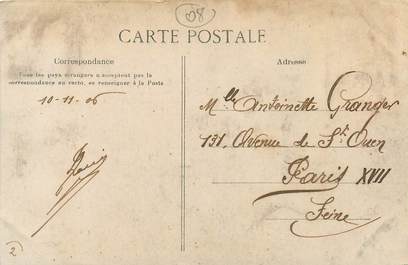 08
CARTE POSTALE
Correspondance
Tous les pays étrangers n'acceptent pas la
correspondance au recto, se renseigner à la Poste
10-11-06
Adresse
Mlle Antoinette Granger
131 Avenue de St Ouen
Paris XVII
Seine
2